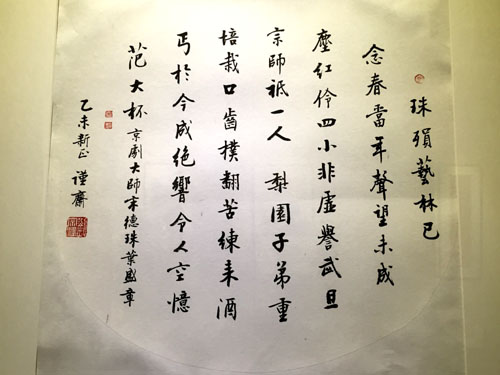 珠殞藝林已
念春當年聲望未成
塵紅伶四小非虛譽武旦
宗師祗一人 梨園子弟重
培栽口齒撲翻苦練来酒
丐於今成絕響令人空憶
范大杯 京劇大師宋德珠葉盛章
乙未新正 谨齋